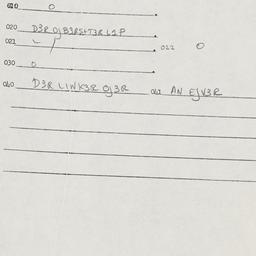 010 0
020 D3R OJB3RS+T3R L1P
021 022 0
030 0
040 D3R LINK3R OJ3R 041 AN EJV3R